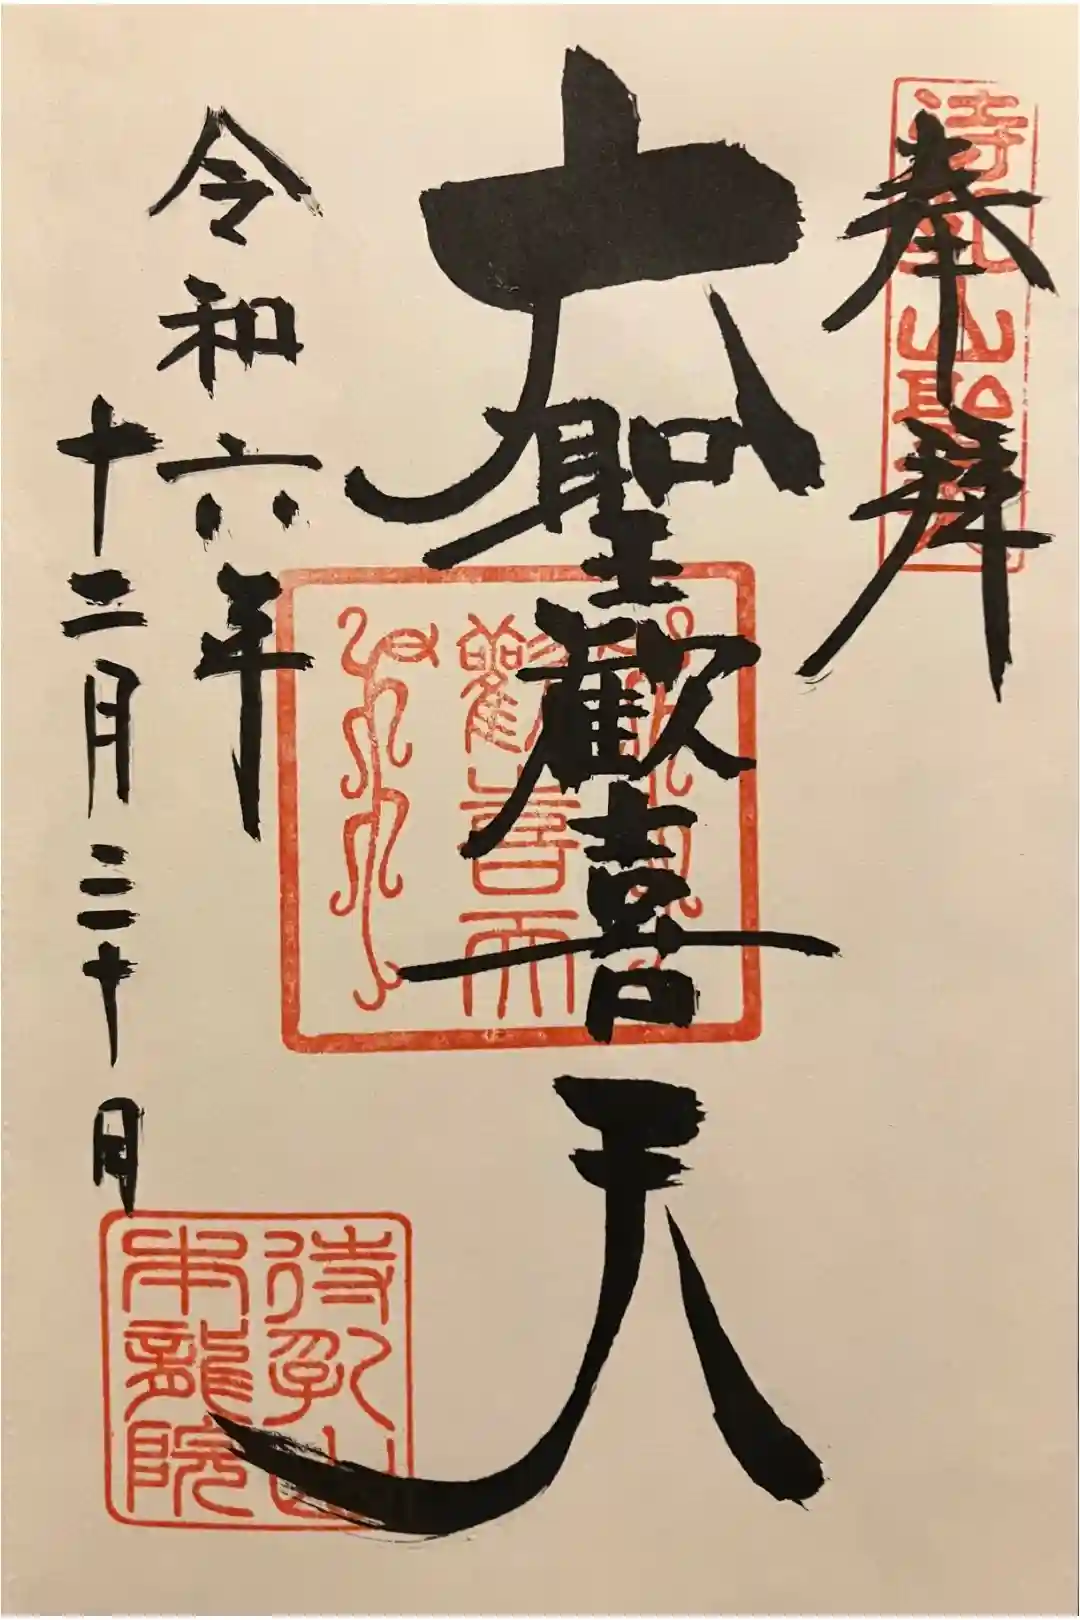 奉拝
待乳山聖天
大聖歓喜天
歡喜天
令和六年
十二月三十日
待乳山
本龍院